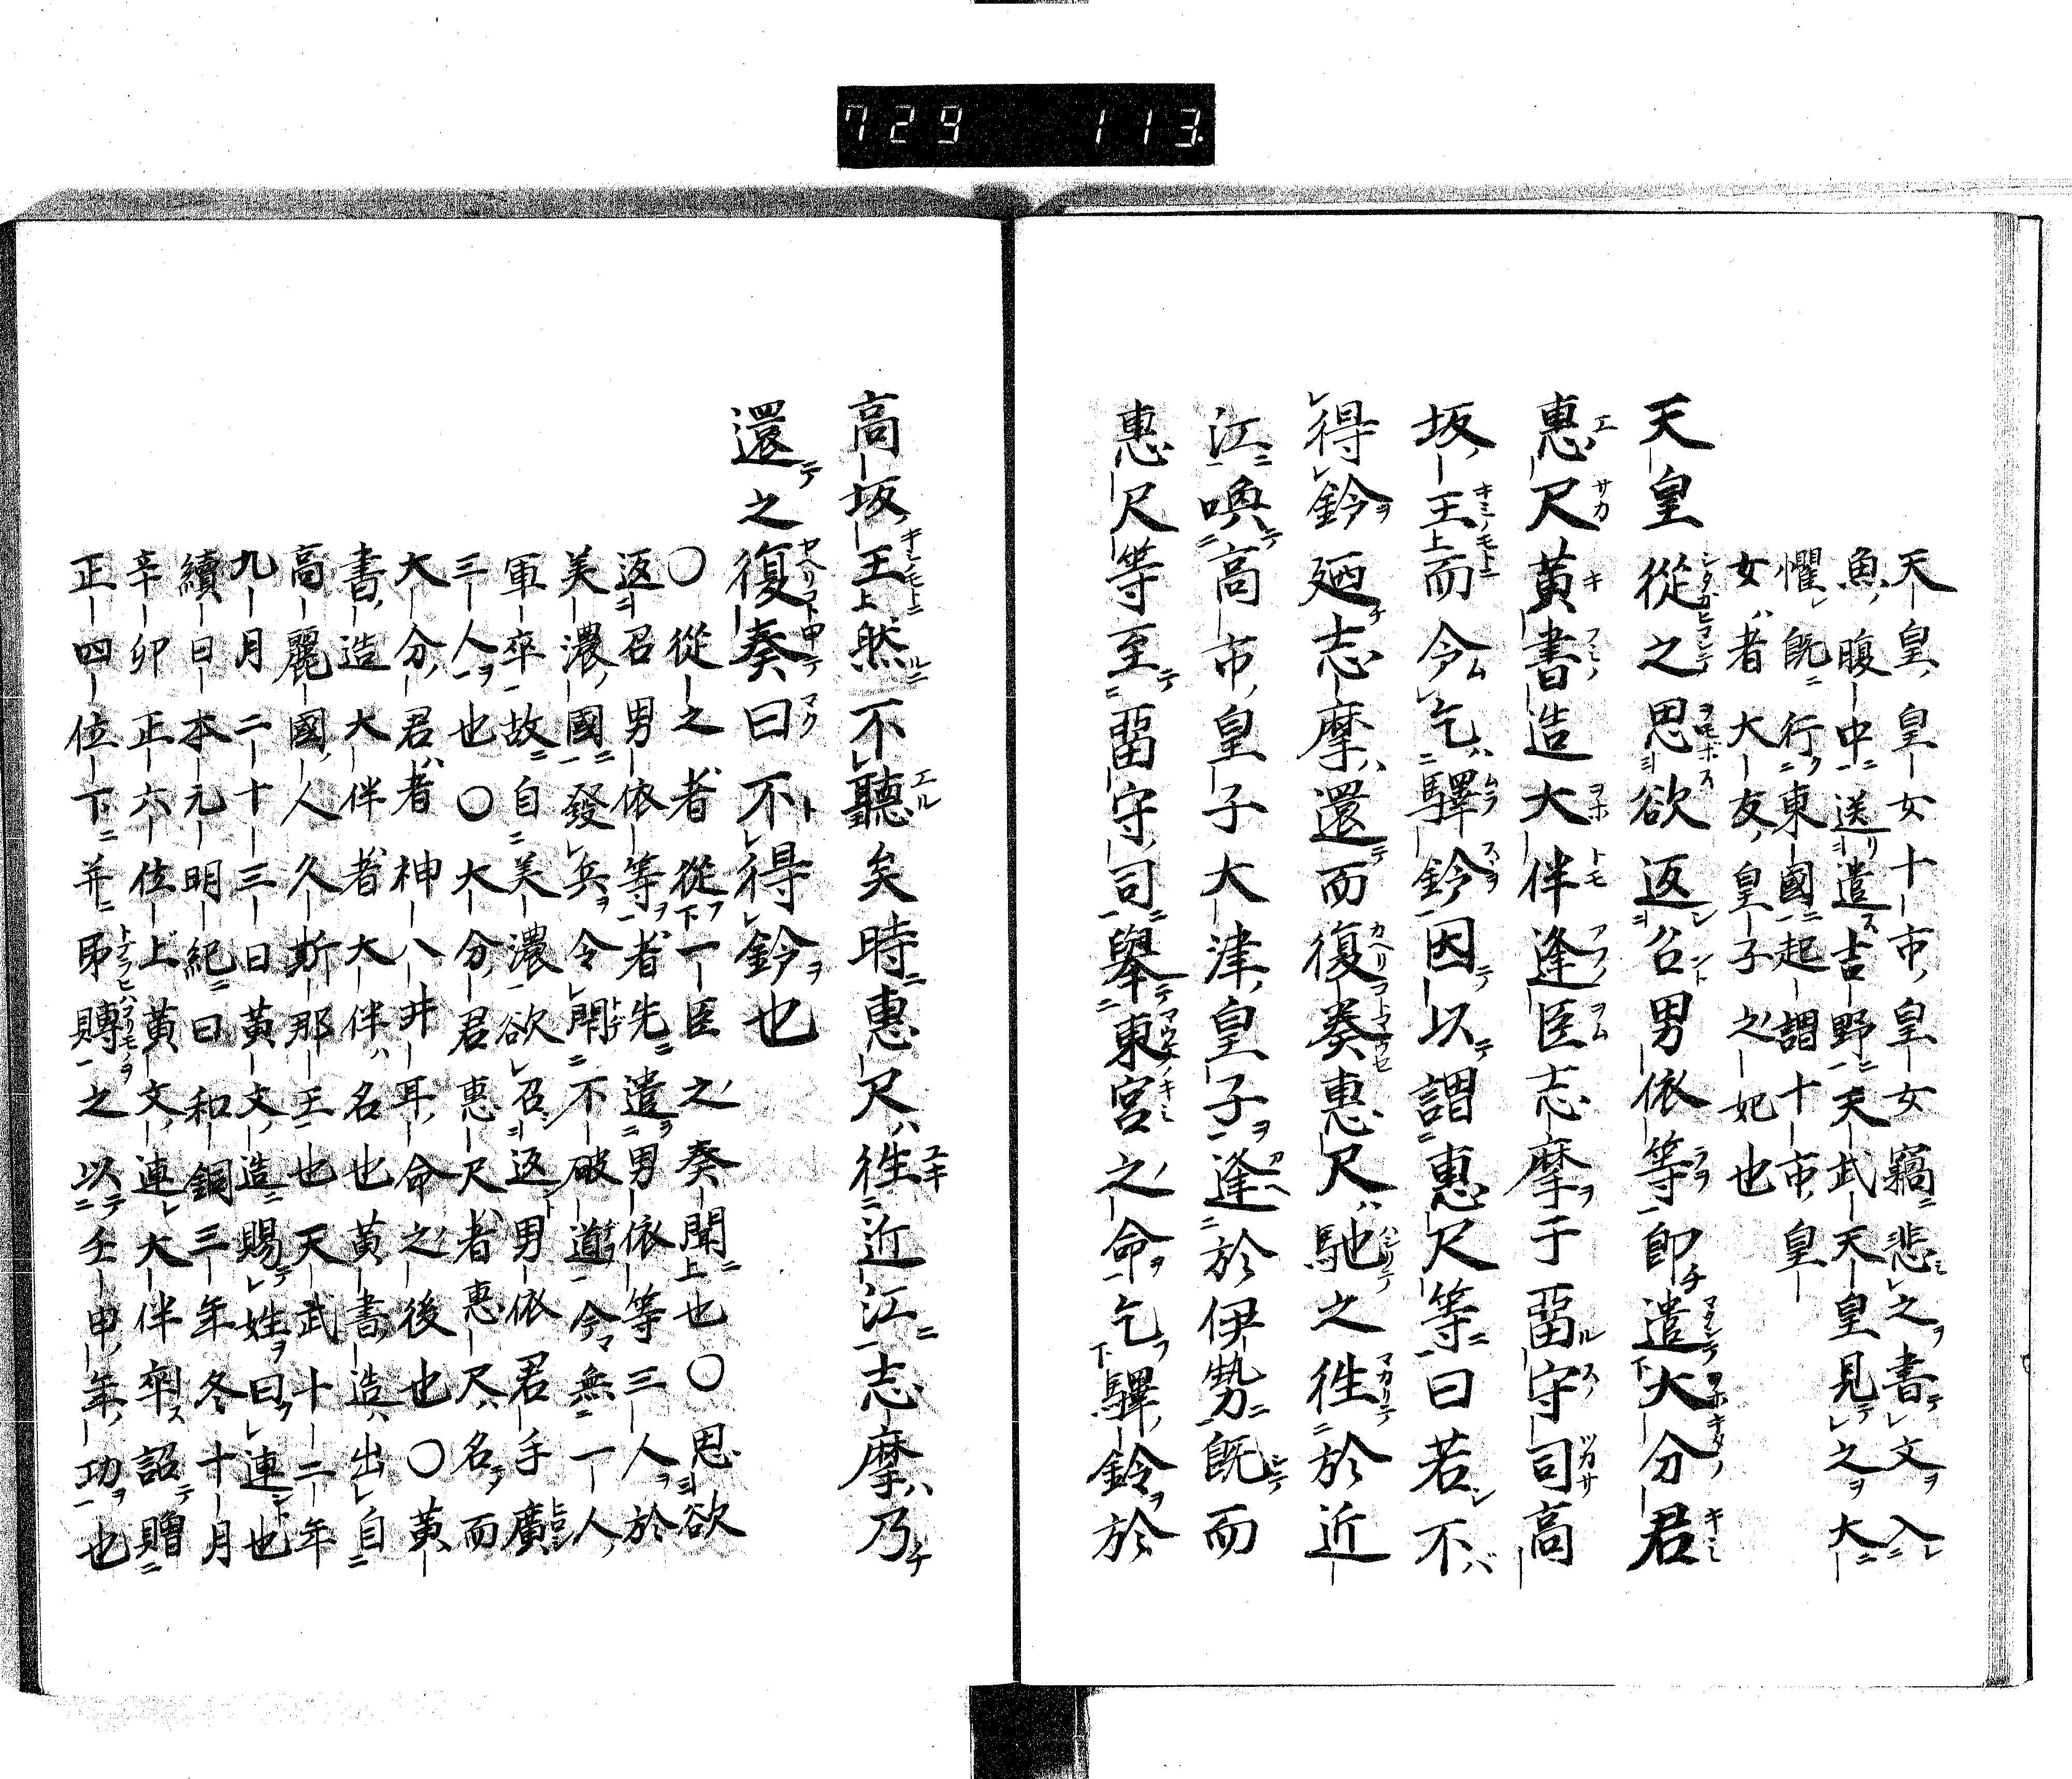 729 113
天皇皇女十市皇女竊悲之書文入
魚腹中送遣吉野天武天皇見之大
懼既行東國起謂十市皇
女者大友皇子之妃也
天皇從之思欲返召男依等即遣大分君
惠尺黄書造大伴逢臣志摩于畱守司高
坂王而令乞驛鈴因以謂惠尺等曰若不
得鈴廼志摩還而復奏惠尺馳之徃於近
江喚高市皇子大津皇子逢於伊勢既而
惠尺等至畱守司舉東宮之命乞驛鈴於
高坂王然不聽矣時惠尺徃近江志摩乃
還之復奏曰不得鈴也
○從之者從一臣之奏聞上也○思欲
返召男依等者先遣男依等三人於
美濃國發兵令閇不破道今無一人
軍卒故自美濃欲召返男依君手廣
三人也○大分君惠尺者惠尺名而
大分君者神八井耳命之後也○黄
書造大伴者大伴名也黄書造出自
高麗國人久斯那王也天武十二年
九月二十三日黄文造賜姓曰連也
續日本元明紀曰和銅三年冬十月
辛卯正六位上黄文連大伴卒詔贈
正四位下并弔賻之以壬申年功也